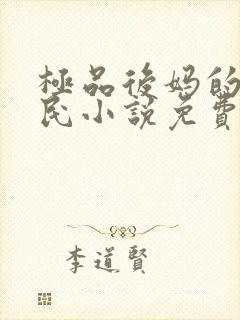 極品後媽的
民小說免費
李道賢